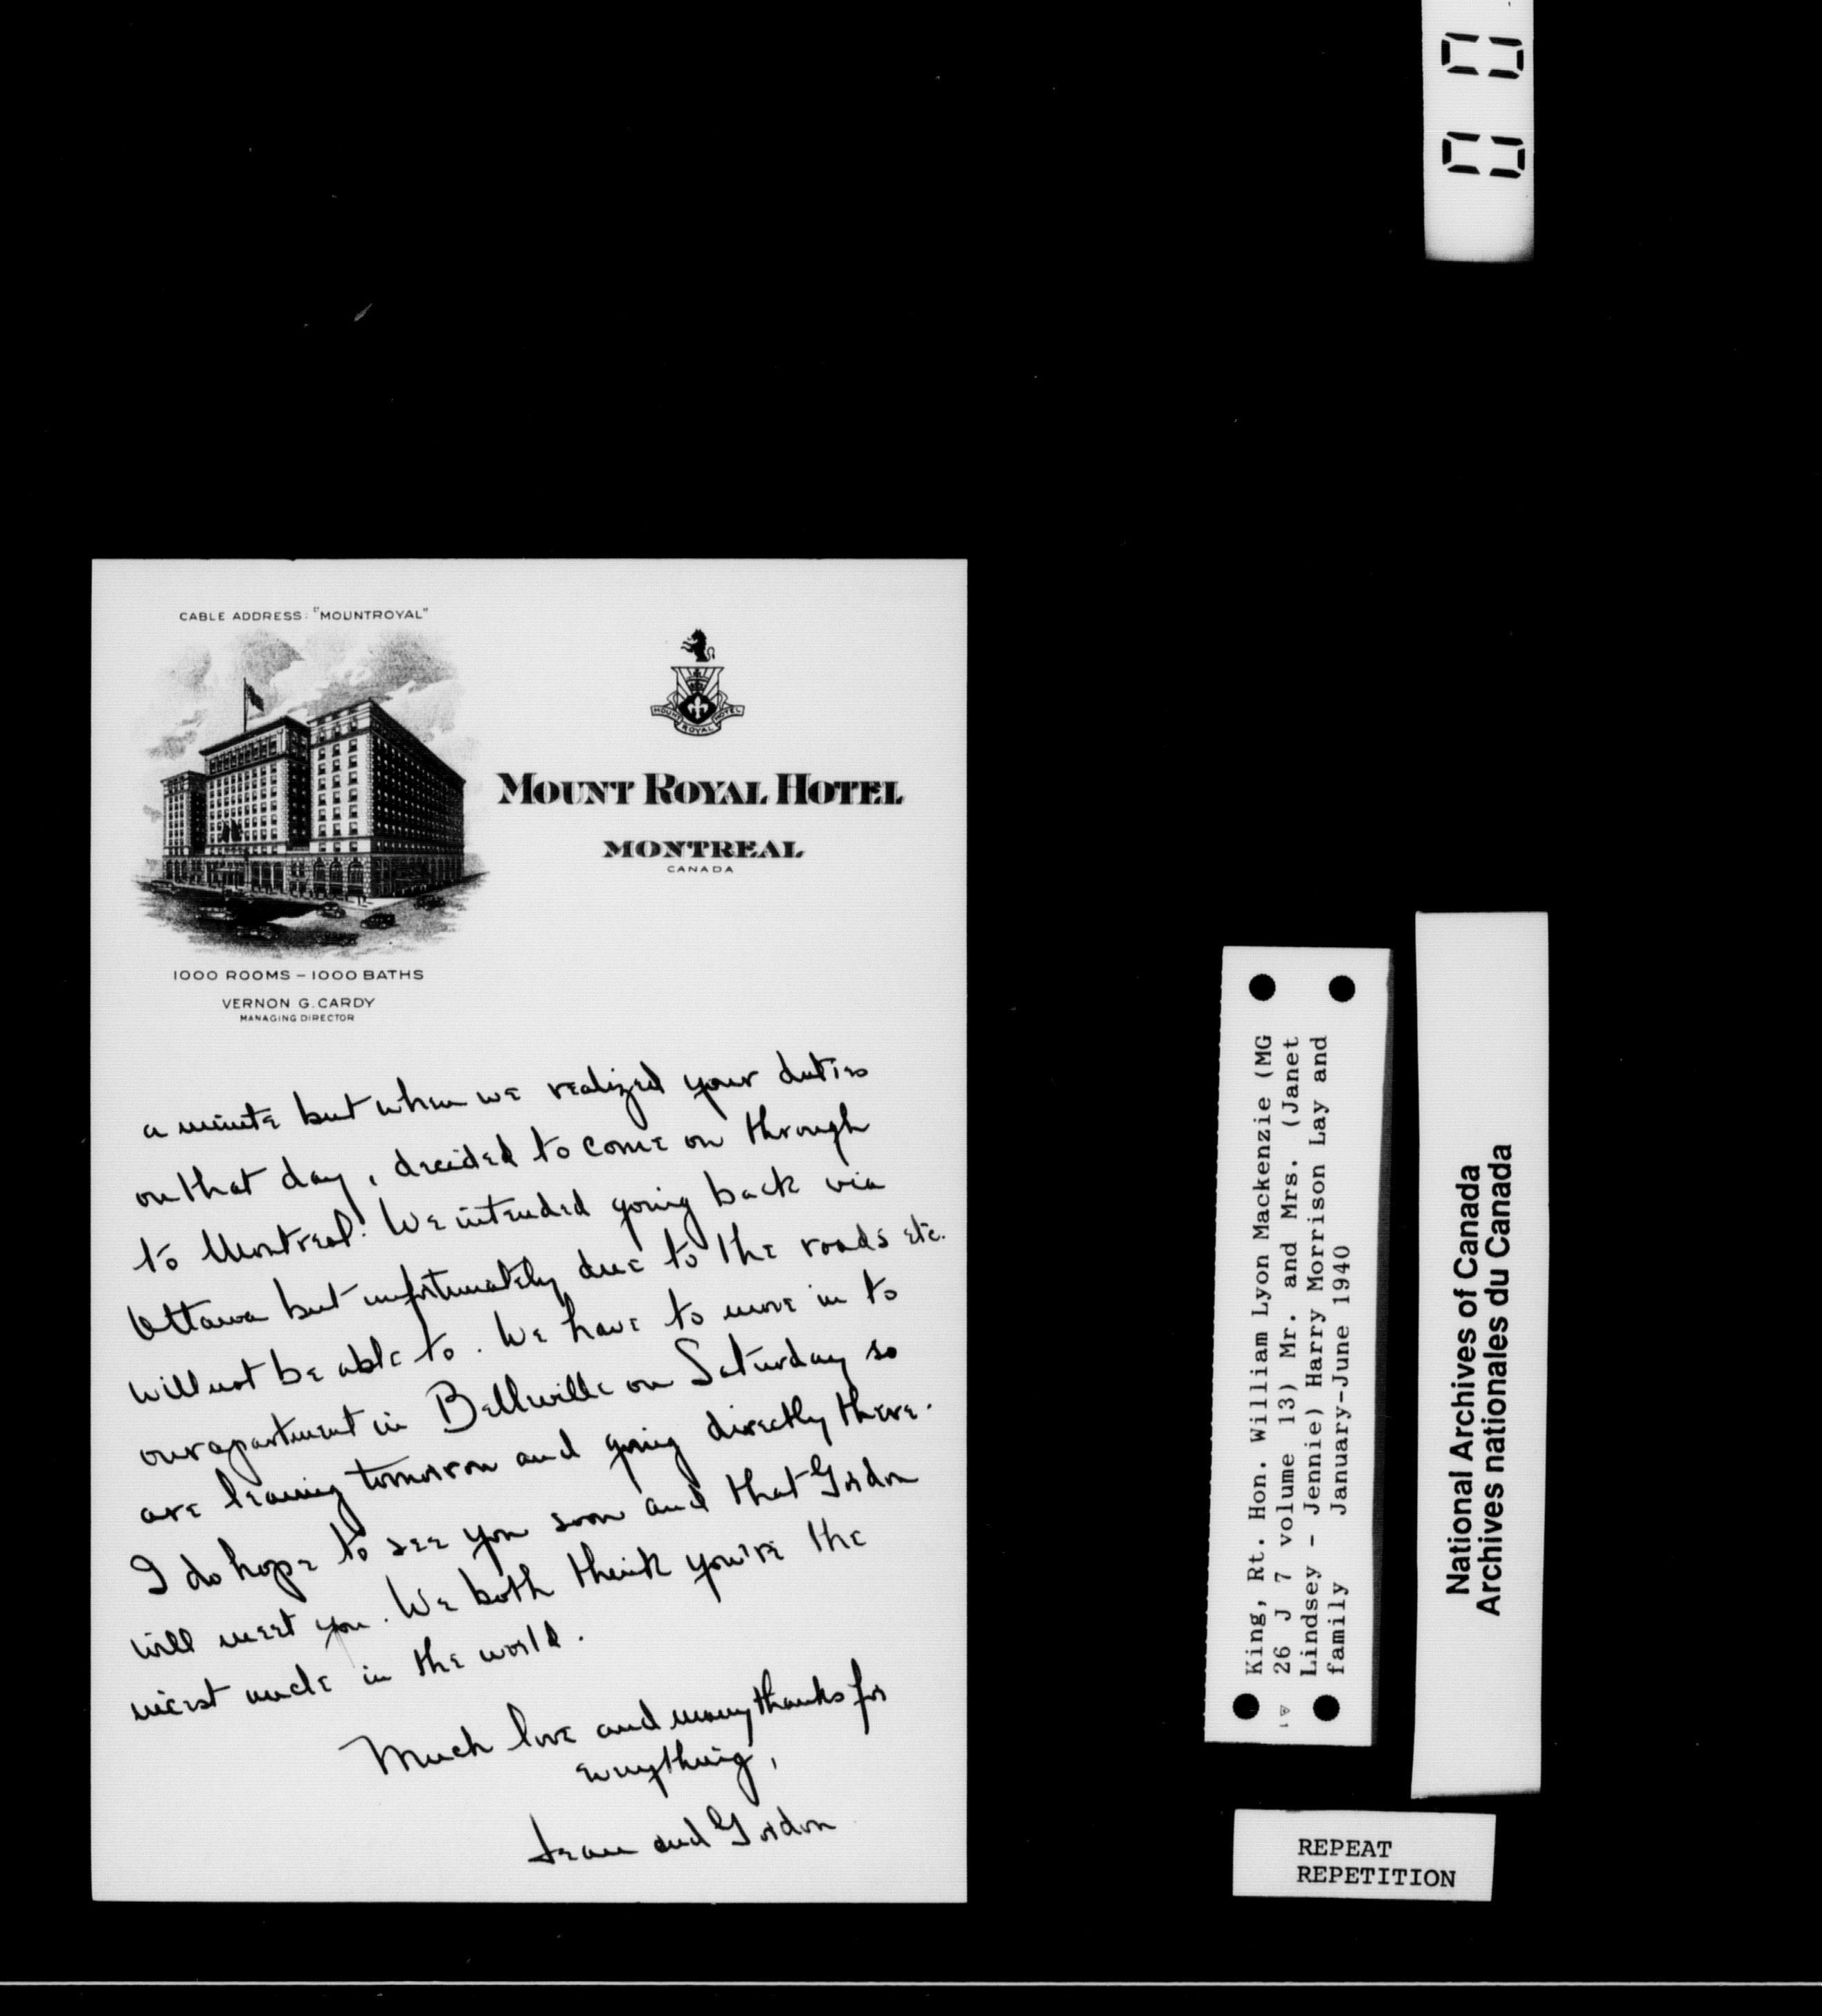 CABLE ADDRESS: "MOUNTROYAL"
MOUNT ROYAL HOTEL
MOUNT ROYAL HOTEL
MONTREAL
CANADA
1000 ROOMS – 1000 BATHS
VERNON G. CARDY
MANAGING DIRECTOR
a minute but when we realized your duties
on that day, decided to come on through
to Montreal. We intended going back via
Ottawa but unfortunately due to the roads etc.
will not be able to. We have to move in to
our apartment in Bellville on Saturday so
are leaving tomorrow and going directly there.
I do hope to see you soon and that Gordon
will meet you. We both think you're the
nicest uncle in the world.
Much love and many thanks for
everything,
Jean and Gordon
King, Rt. Hon. William Lyon Mackenzie (MG
26 J 7 volume 13) Mr. and Mrs. (Janet
Lindsey - Jennie) Harry Morrison Lay and
family January-June 1940
National Archives of Canada
Archives nationales du Canada
REPEAT
REPETITION